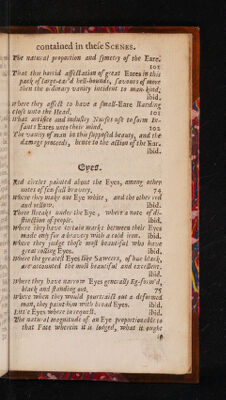 contained in these SCENES.
The natural proportion and symetry of the Eare.
101
That this horrid affectation of great Eares in this
pack of large-ear'd hell-hounds, savours of more
then the ordinary vanity incident to man-kind;
ibid.
Where they affect to have a small-Eare standing
close unto the Head.
101
What artifice and industry Nurses use to form In-
fants Eares unto their mind.
102
The vanity of men in this supposed beauty, and the
damage proceeds, hence to the action of the Ear.
ibid.
Eyes.
Red circles painted about the Eyes, among other
notes of face-full bravery.
74
Where they make one Eye white, and the other red
and yellow.
ibid.
Three streaks under the Eye, where a note of di-
stinction of people.
ibid.
Where they have certain marks between their Eyes
made only for a bravery with a cold iron.
ibid.
Where they judge those most beautiful who have
great rolling Eyes.
ibid.
Where the greatest Eyes like Sawcers, of hue black,
are accounted the most beautiful and excellent.
ibid.
Where they have narrow Eyes generally Eg-form'd,
black and standing out.
75
Where when they would pourtraict out a deformed
man, they paint him with broad Eyes.
ibid.
Little Eyes where in request.
ibid.
The natural magnitude of an Eye proportionable to
that Face wherein it is lodged, what it ought